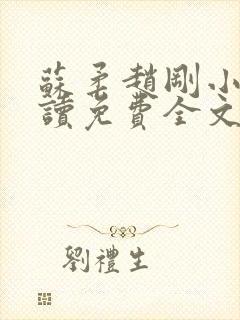 蘇柔趙剛小
讀免費全文
劉禮生